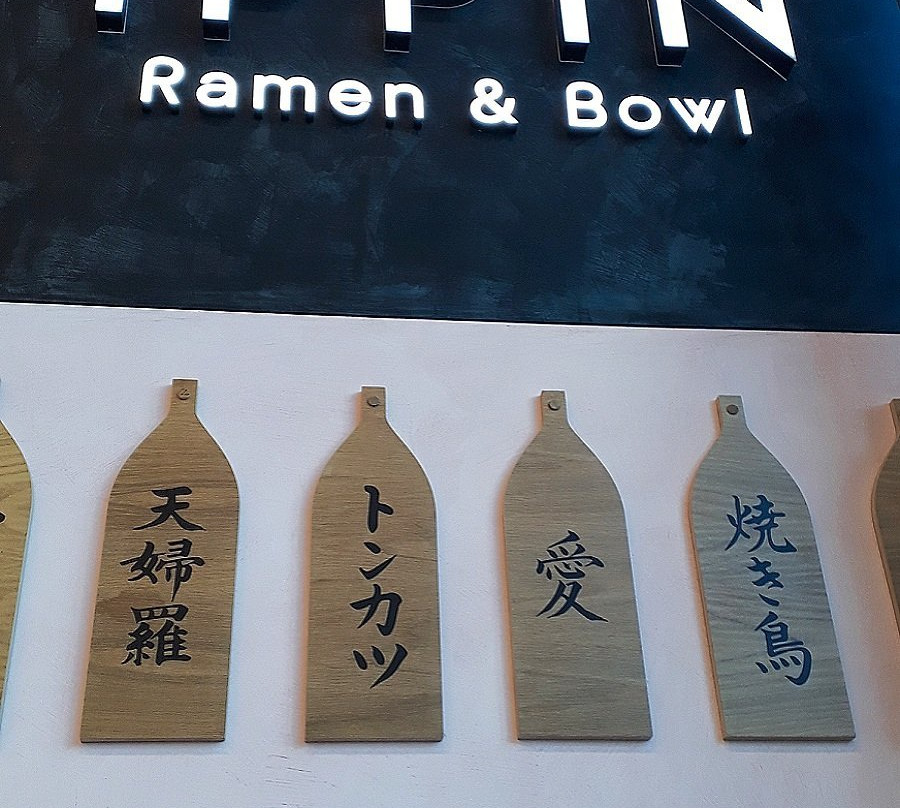 IPPIN
Ramen & Bowl
天婦羅
トンカツ
愛
焼き鳥